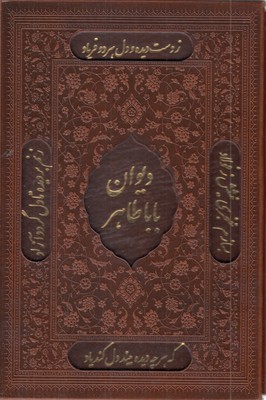 ز دست دیده و دل هر دو فریاد
که هر چه دیده بیند دل کند یاد
بسازم خنجری نیشش ز فولاد
زنم بر دیده تا دل گردد آزاد
دیوان
باباطاهر